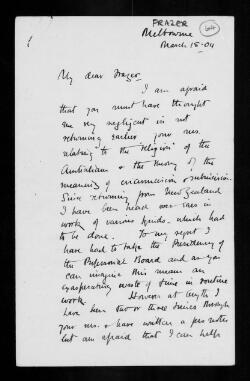 FRAZER
64
Melbourne
March 15-04
My dear Frazer
I am afraid
that you must have thought
me very negligent in not
returning earlier your ms.
relating to the religion of the
Australians & the theory of the
meaning of circumcision & subincision.
Since returning from New Zealand
I have been hard over ears in
work of various kinds, which had
to be done. To my regret I
have had to take the Presidency of
the Professorial Board and as you
can imagine this means an
exasperating waste of time in routine
work. However at length I
have been two or three times through
your ms. & have written a few notes
but am afraid that I can help